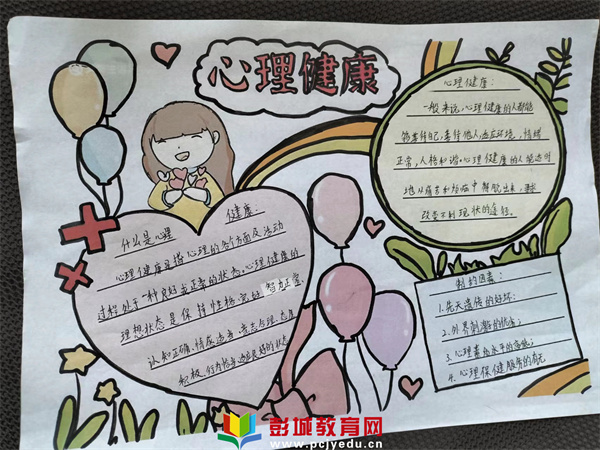 心理健康
什么是心理健康:
心理健康是指心理的各个方面及活动
过程处于一种良好或正常的状态。心理健康的
理想状态是保持性格完好、智力正常、
认知正确、情感适当、意志合理、态度
积极、行为恰当、适应良好的状态
心理健康:
一般来说,心理健康的人都能
善待自己,善待他人,适应环境,情绪
正常,人格和谐。心理健康的人能适时
地从痛苦和
中解脱出来,
改变不利现状的途径。
制约因素:
1.先天遗传的好坏:
2.外界刺激的优劣;
3.心理素质水平的高低;
4.心理保健服务的有无
彭城教育网
www.pcjyedu.cn